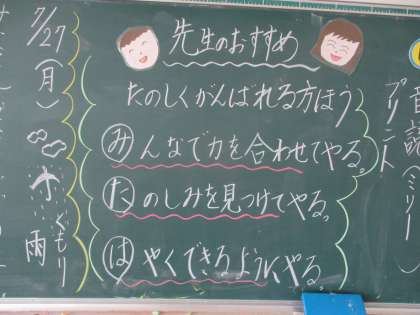 先生のおすすめ
たのしくがんばれる方ほう
みんなで力を合わせてやる。
たのしみを見つけてやる。
はやくできるように、やる。
7/27(月)
くもり
雨
プリント